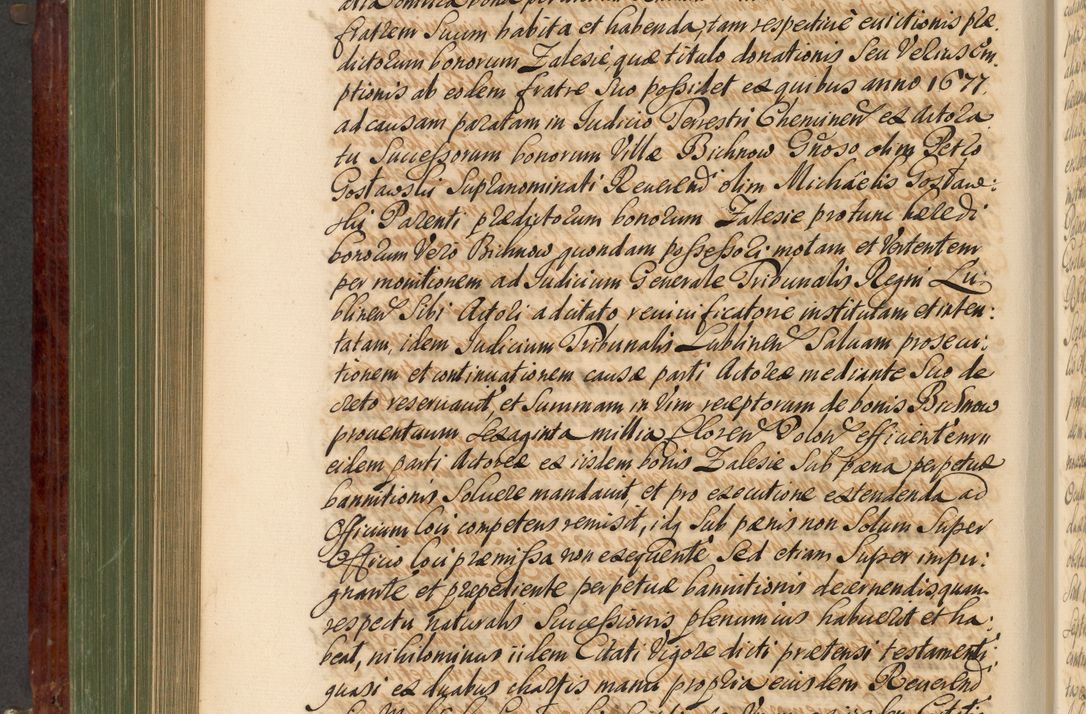 fratrem Suum habita et habenda, tam respectivè evictionis præ:
dictorum bonorum Zalesie quæ titulo donationis Seu Verius Em:
ptionis ab eodem fratre Suo possidet ex quibus anno 1677.
ad causam paratam in Judicio Terrestri Cheminen ex Actora
tu Successorum bonorum Villæ Bichnow Gnoso olim Petro
Gostawski Supranominati Reverend olim Michaëlis Gostaw:
ski Parenti prædictorum bonorum Zalesie pro tunc hæredi
bonorum Vero Bichnow quondam possessori motam et Vertentem
per monitionem ad Judicium Generale Tribunalis Regni Lu:
blinen Sibi Actori ad citato revivificatorie institutam et inten:
tatam, idem Judicium Tribunalis Lublinen Salvam prosecu:
tionem et continuationem causæ parti Actoreæ mediante Suo de
creto reservavit, et Summam in Vim receptorum de bonis Bichnow
proventuum Sexaginta millia floren Polon efficientem
eidem parti Actoreæ ex iisdem bonis Zalesie Sub pæna perpetuæ
bannitionis Solvere mandavit et pro executione extendenda ad
Officium loci competens remisit, idq Sub pænis non Solum Super
Officio loci præmissa non exequente Sed etiam Super impu:
gnante et præpediente perpetuæ bannitionis decernendis quam
respectu naturalis Successionis plenum ius habuerit et ha:
beat, nihilominus iidem Citati Vigore dicti prætensi testamenti
quasi ex duabus chartis manu propria eiusdem Reverend